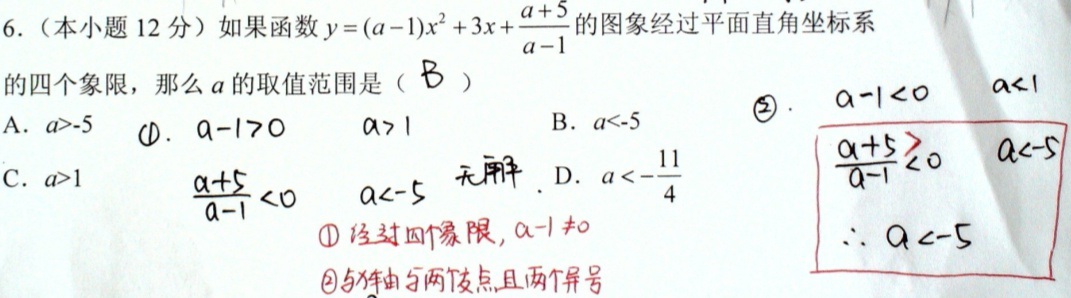 6.（本小题 12 分）如果函数 y=(a-1)x²+3x+\frac{a+5}{a-1} 的图象经过平面直角坐标系
的四个象限，那么 a 的取值范围是（ B ）
A. a>-5
B. a<-5
C. a>1
D. a<-\frac{11}{4}
①. a-1>0 a>1
\frac{a+5}{a-1}<0 a<-5 无解.
②. a-1<0 a<1
\frac{a+5}{a-1}<0 > a<-5
∴ a<-5
① 经过四个象限, a-1≠0
②与x轴有两个交点,且两个异号